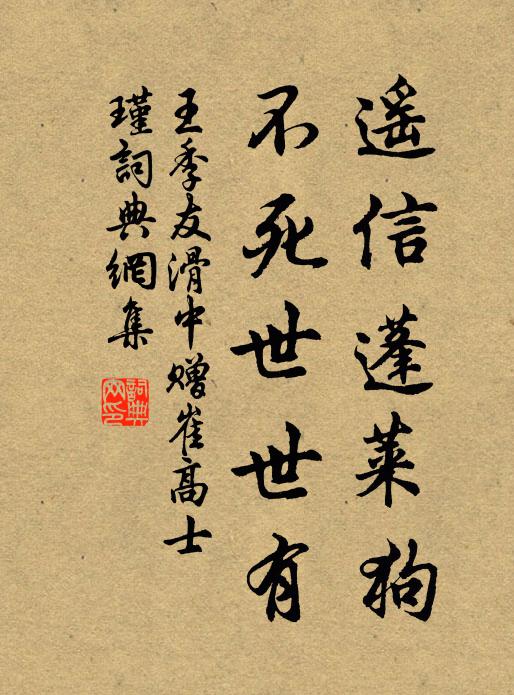 遥信蓬莱狗
不死世世有
王季友滑中赠崔高士
瑾詞典網集
詞典
网印